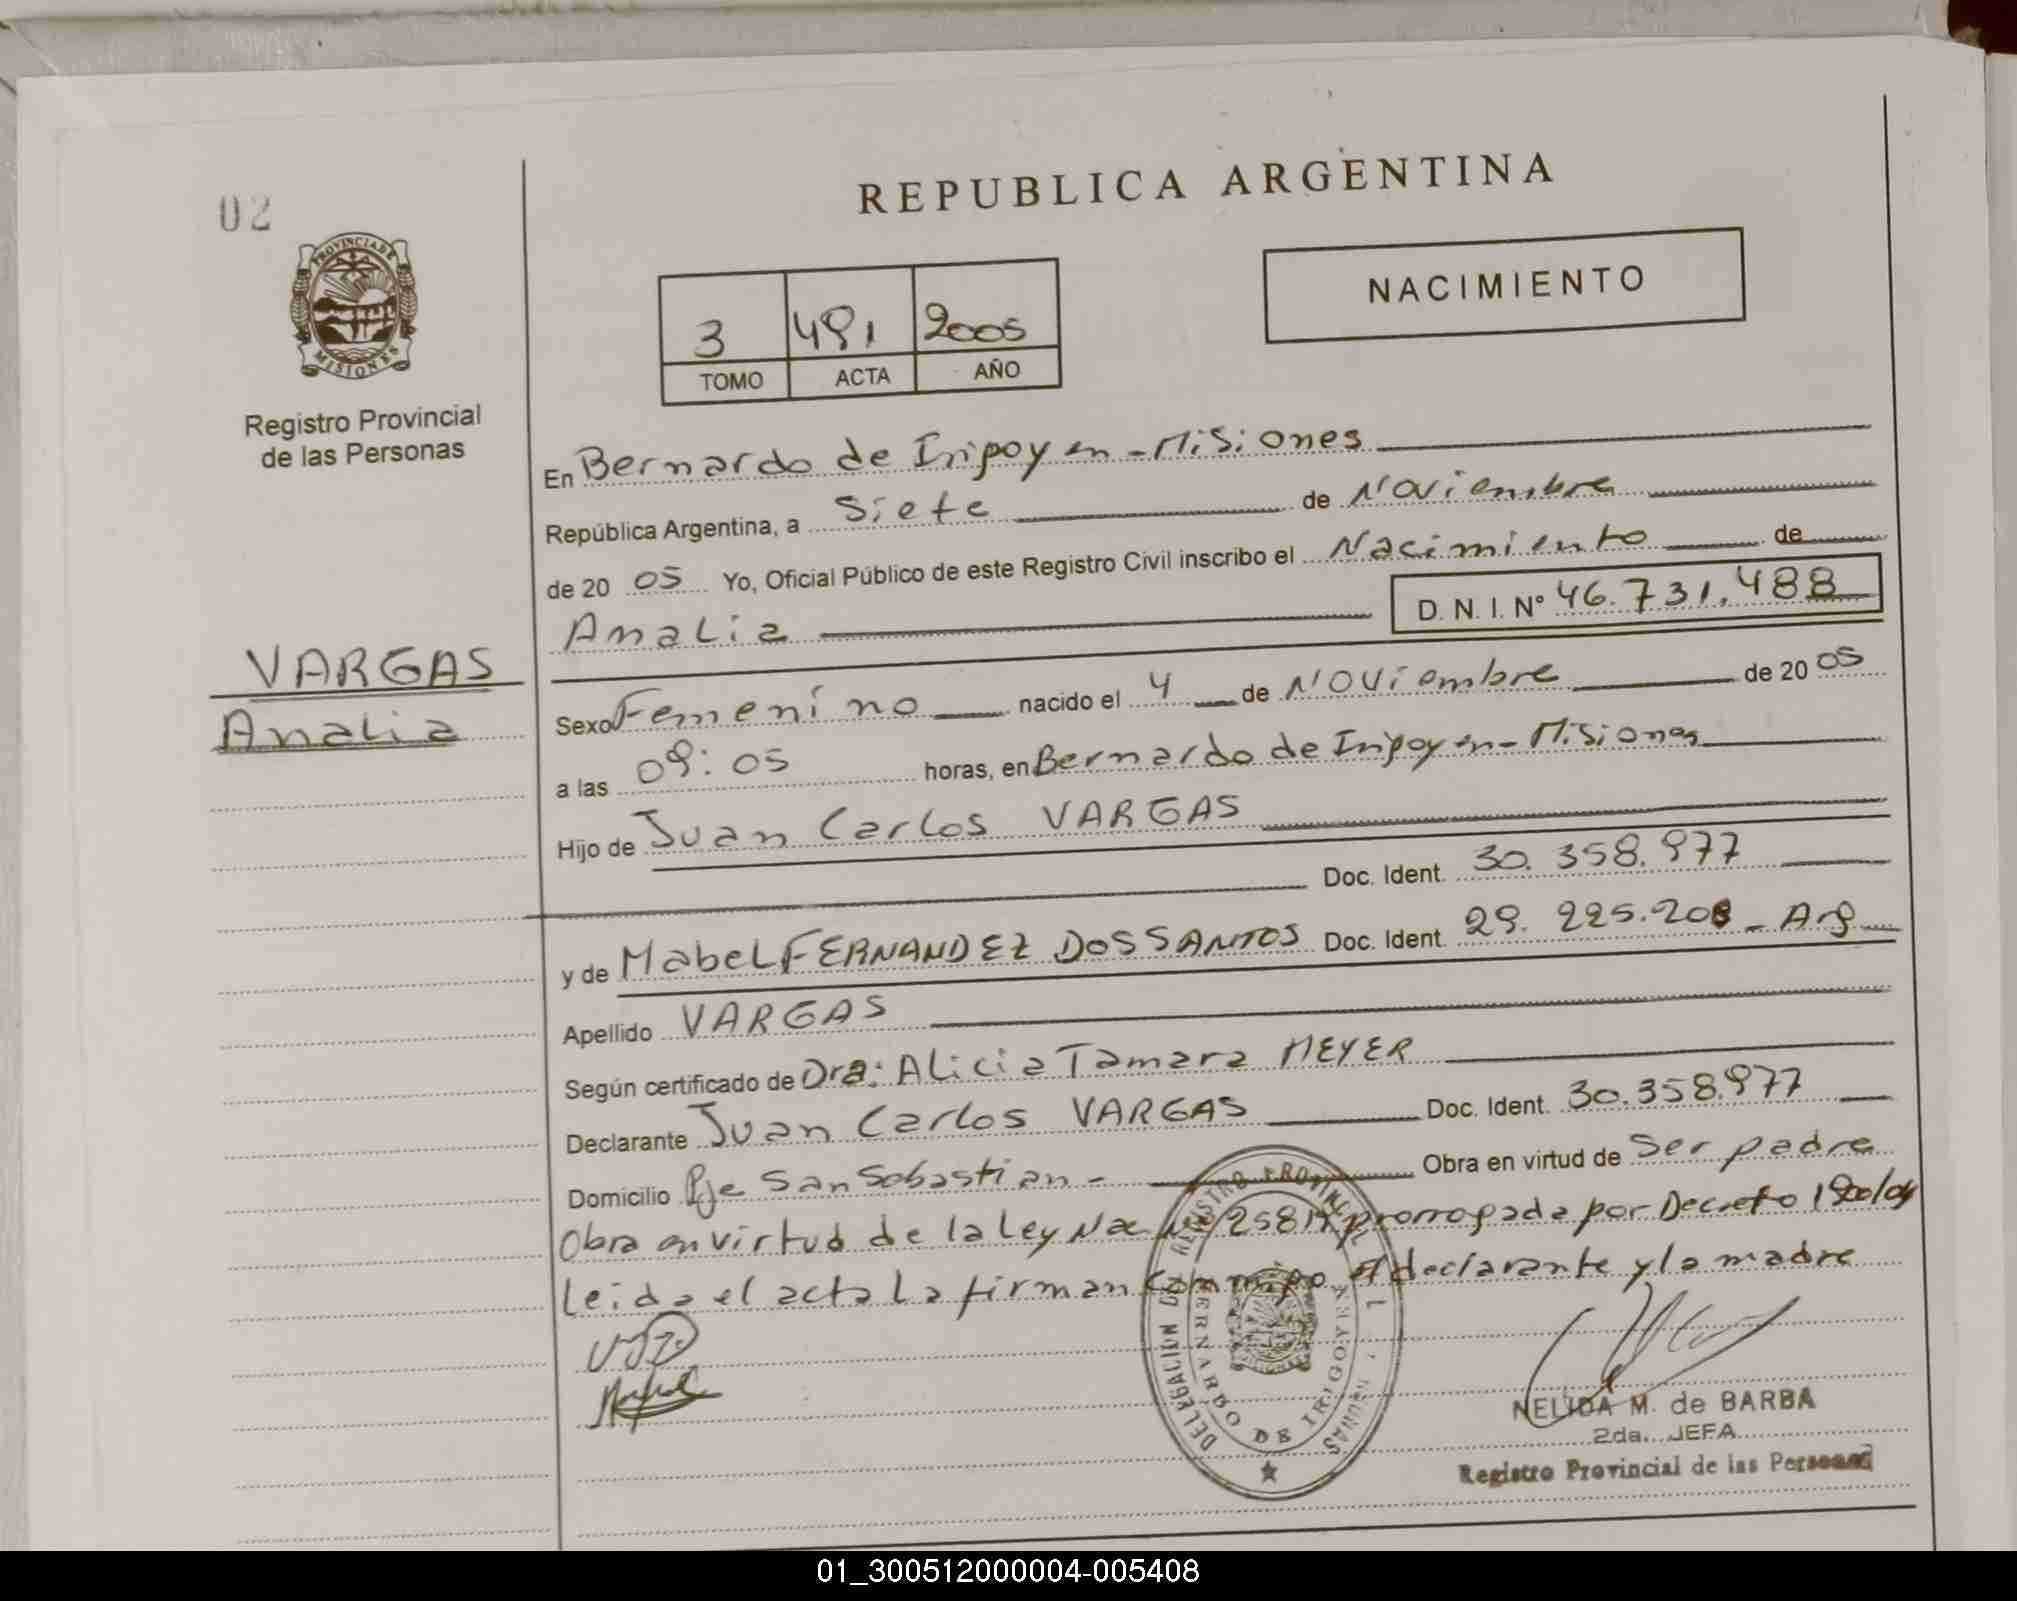 02
REPUBLICA ARGENTINA
NACIMIENTO
PROVINCIA DE
MISIONES
3 491 2005
TOMO ACTA AÑO
Registro Provincial
de las Personas
En Bernardo de Iripoyen - Misiones
República Argentina, a Siete de Noviembre
de 20 05 Yo, Oficial Público de este Registro Civil inscribo el Nacimiento de
Analia D. N. I. N° 46.731.488
VARGAS
Analia
Sexo Femenino nacido el 4 de Noviembre de 20 05
a las 09:05 horas, en Bernardo de Iripoyen - Misiones
Hijo de Juan Carlos VARGAS
Doc. Ident. 30.358.977
y de Mabel FERNANDEZ DOS SANTOS Doc. Ident. 29.225.208 - Arg
Apellido VARGAS
Según certificado de Dra: Alicia Tamara MEYER
Declarante Juan Carlos VARGAS Doc. Ident. 30.358.977
Domicilio Pje San Sebastian - Obra en virtud de Ser padre
Obra en virtud de la Ley 25819 prorrogada por Decreto
Leida el acta La firman conmigo el declarante y la madre
DELEGACION DEL REGISTRO PROVINCIAL
BERNARDO DE IRIGOYEN
NELIDA M. de BARBA
2da. JEFA
Registro Provincial de las Personas
01_300512000004-005408